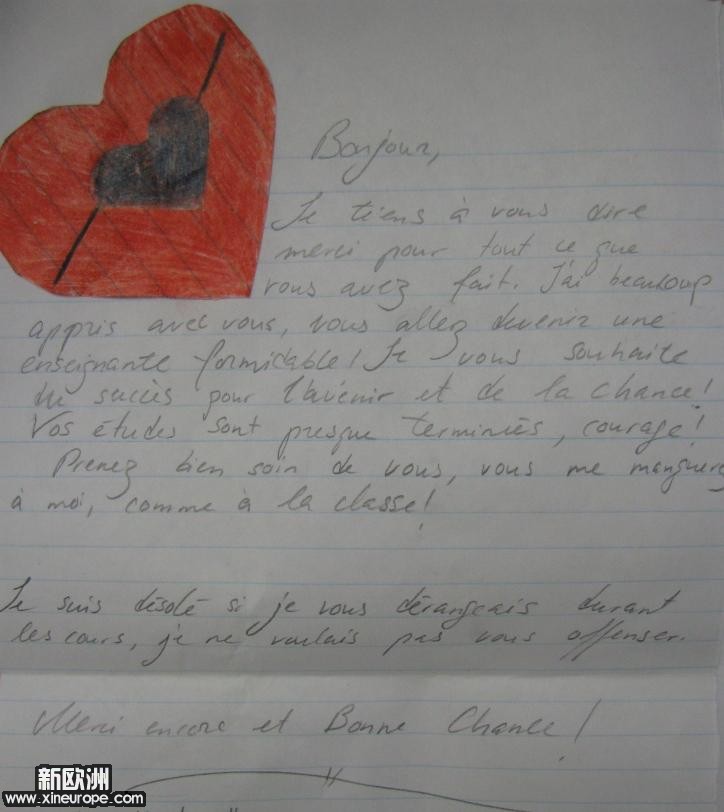 Bonjour,
Je tiens à vous dire
merci pour tout ce que
vous avez fait. J'ai beaucoup
appris avec vous, vous allez devenir une
enseignante formidable! Je vous souhaite
du succès pour l'avenir et de la chance!
Vos études sont presque terminées, courage!
Prenez bien soin de vous, vous me manquerez
à moi, comme à la classe!
Je suis désolé si je vous dérangeais durant
les cours, je ne voulais pas vous offenser.
Merci encore et Bonne Chance!
新欧洲
www.xineurope.com